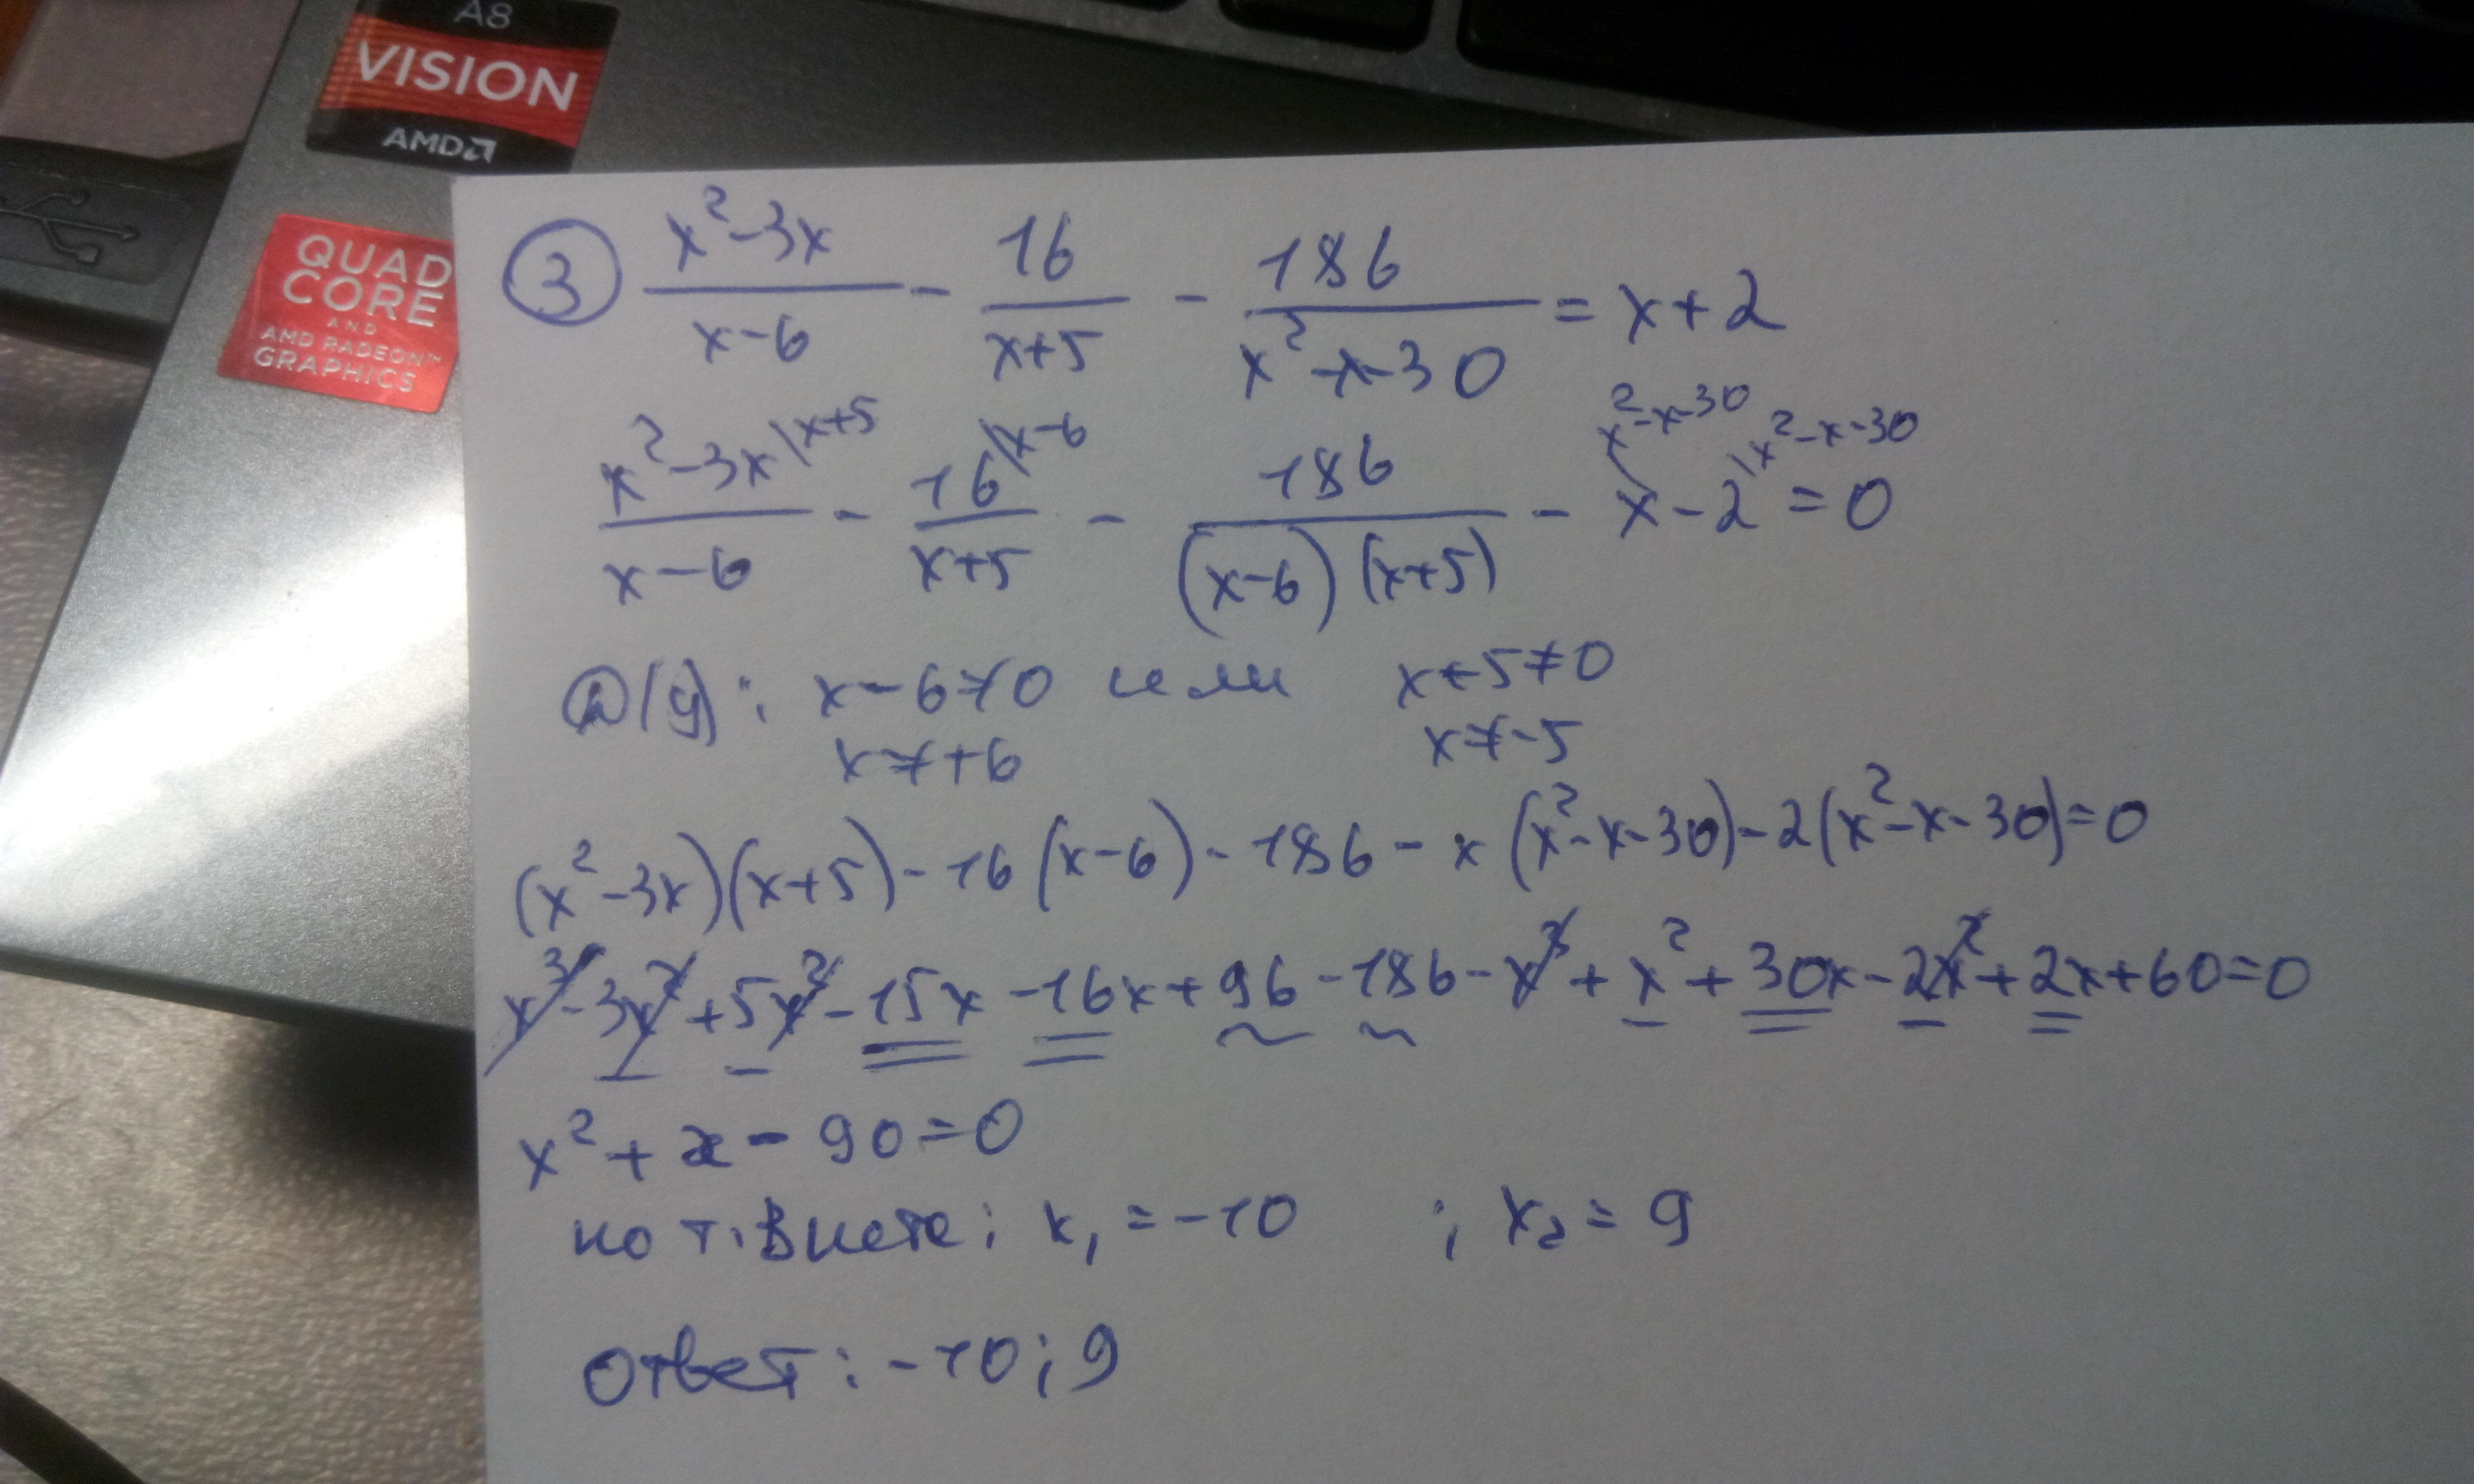 A8
VISION
AMD
QUAD
CORE
AND
AMD RADEON™
GRAPHICS
③ (x²-3x)/(x-6) - 16/(x+5) - 186/(x²-x-30) = x+2
(x²-3x)/(x-6) \x+5 - 16/(x+5) \x-6 - 186/((x-6)(x+5)) - x \x²-x-30 - 2 \x²-x-30 = 0
D(y): x-6≠0 или x+5≠0
x≠+6 x≠-5
(x²-3x)(x+5)-16(x-6)-186-x(x²-x-30)-2(x²-x-30)=0
x³-3x²+5x²-15x-16x+96-186-x³+x²+30x-2x²+2x+60=0
x²+x-90=0
по т. Виета: x₁=-10 ; x₂=9
Ответ: -10; 9